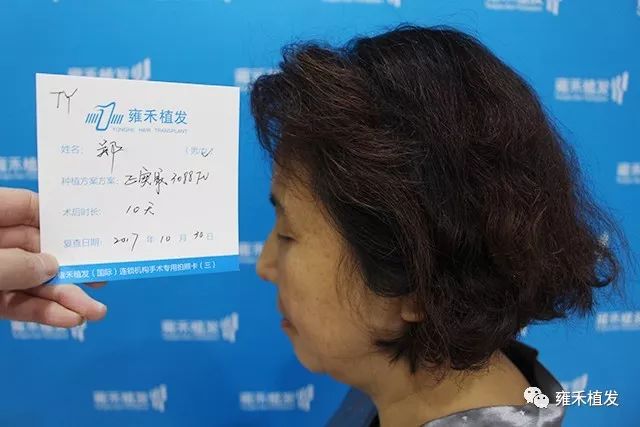 TY
雍禾植发
YONGHE HAIR TRANSPLANT
姓名： 郑 （男/女）
种植方案方案：
3088FU
术后时长： 10天
复查日期： 2017 年 10 月 30 日
雍禾植发（国际）连锁机构手术专用拍照卡（三）
雍禾植发
雍禾植发
雍禾植发
雍禾植发
雍禾植发
雍禾植发
雍禾植发